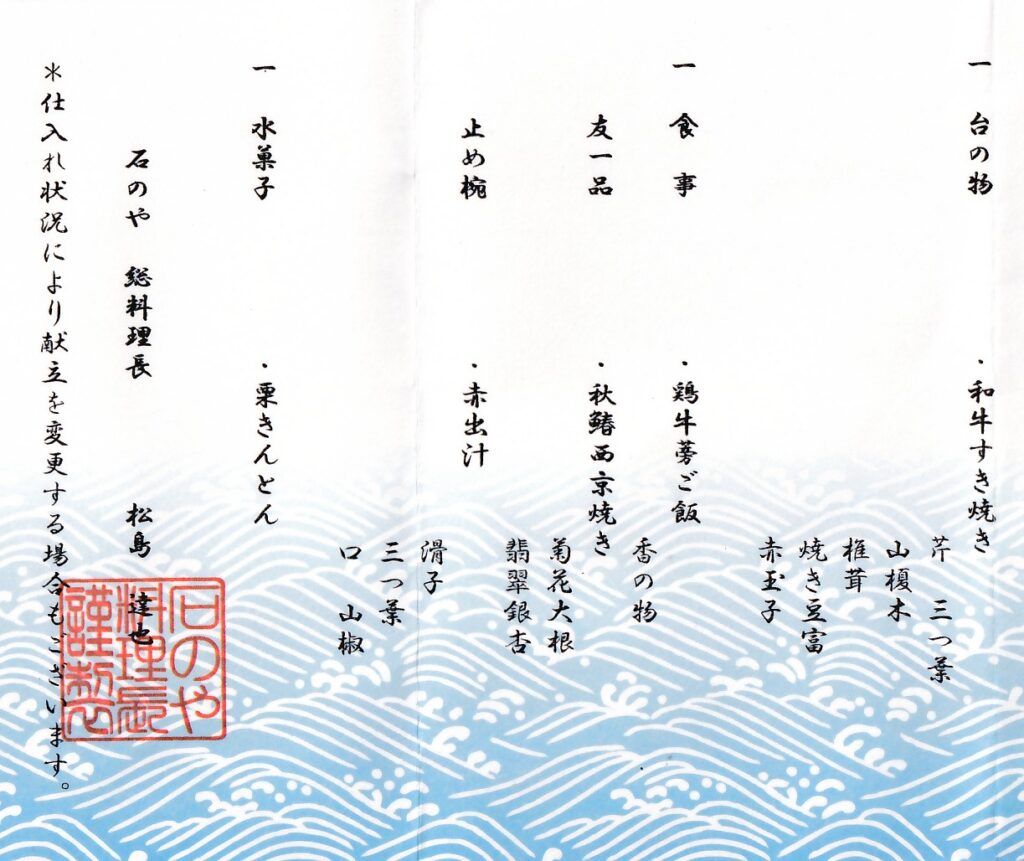 一　台の物　・和牛すき焼き
芹　三つ葉
山榎木
椎茸
焼き豆富
赤玉子
一　食　事　・鶏牛蒡ご飯
香の物
友一品　・秋鰆西京焼き
菊花大根
翡翠銀杏
止め椀　・赤出汁
滑子
三つ葉
口　山椒
一　水菓子　・栗きんとん
石のや　総料理長　松島　達也
石のや
料理長
謹製
＊仕入れ状況により献立を変更する場合もございます。